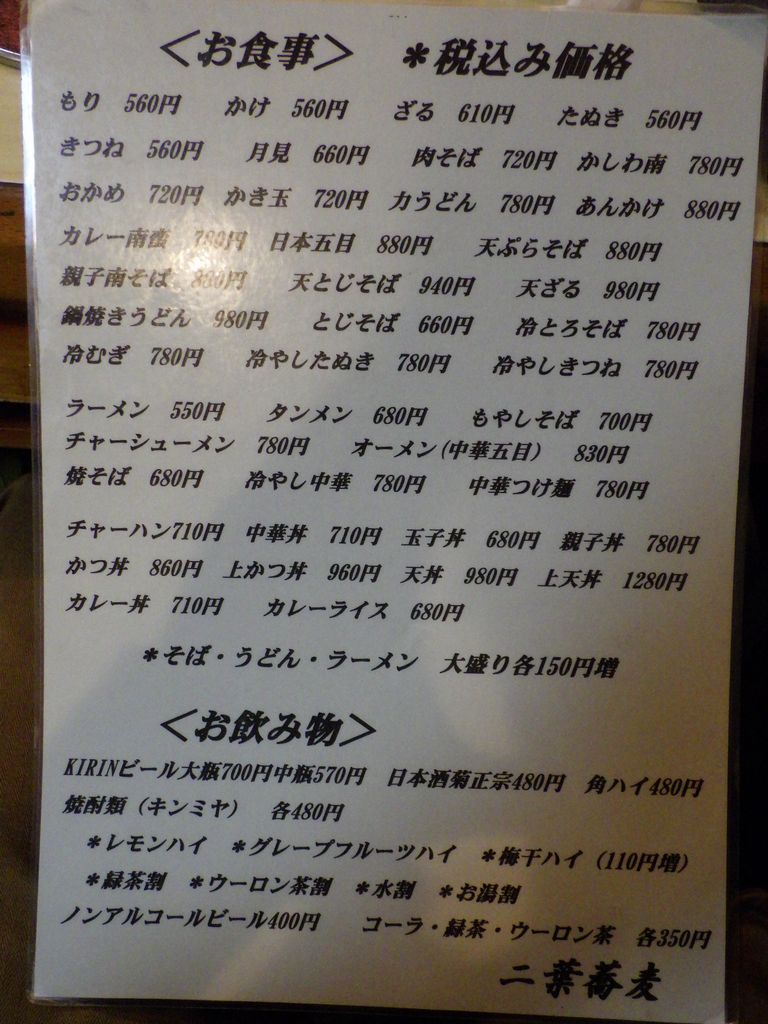 ＜お食事＞ ＊税込み価格
もり 560円 かけ 560円 ざる 610円 たぬき 560円
きつね 560円 月見 660円 肉そば 720円 かしわ南 780円
おかめ 720円 かき玉 720円 力うどん 780円 あんかけ 880円
カレー南蛮 780円 日本五目 880円 天ぷらそば 880円
親子南そば 天とじそば 940円 天ざる 980円
鍋焼きうどん 980円 とじそば 660円 冷とろそば 780円
冷むぎ 780円 冷やしたぬき 780円 冷やしきつね 780円
ラーメン 550円 タンメン 680円 もやしそば 700円
チャーシューメン 780円 オーメン(中華五目) 830円
焼そば 680円 冷やし中華 780円 中華つけ麺 780円
チャーハン710円 中華丼 710円 玉子丼 680円 親子丼 780円
かつ丼 860円 上かつ丼 960円 天丼 980円 上天丼 1280円
カレー丼 710円 カレーライス 680円
＊そば・うどん・ラーメン 大盛り各150円増
＜お飲み物＞
KIRINビール大瓶700円中瓶570円 日本酒菊正宗480円 角ハイ480円
焼酎類（キンミヤ） 各480円
＊レモンハイ ＊グレープフルーツハイ ＊梅干ハイ（110円増）
＊緑茶割 ＊ウーロン茶割 ＊水割 ＊お湯割
ノンアルコールビール400円 コーラ・緑茶・ウーロン茶 各350円
二葉蕎麦